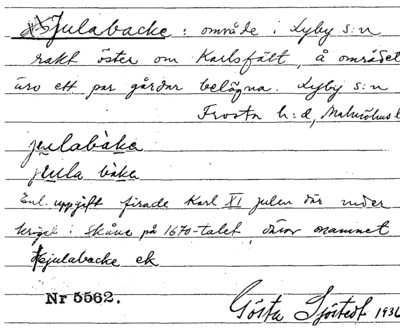 Hjulabacke : område i Lyby s:n
rakt öster om Karlsfält, å området
äro ett par gårdar belägna. Lyby s:n
Frosta h:d, Malmöhus l
jʉlabàkɛ
jʉla bàkɛ
Enl. uppgift firade Karl XI julen där under
kriget i Skåne på 1670-talet, därav namnet
Hjulabacke ek
Nr 5562.
Gösta Sjöstedt 1936